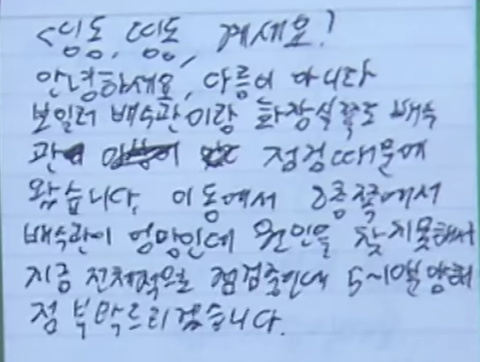 <딩동, 띵동, 계세요!
안녕하세요, 다름이 아니라
보일러 배수관이랑 화장실쪽도 배수
관 점검때문에
왔습니다. 이 동에서 2층쪽에서
배수관이 엉망인데 원인을 찾지못해서
지금 전체적으로 점검중인데 5~10분 양해
점 부탁드리겠습니다.